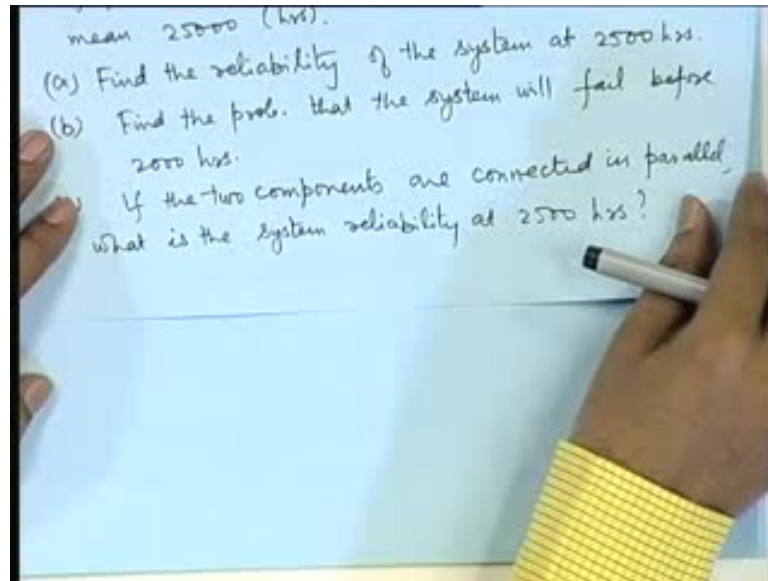 mean 25000 (hrs).
(a) Find the reliability of the system at 2500 hrs.
(b) Find the prob. that the system will fail before
2000 hrs.
If the two components are connected in parallel,
what is the system reliability at 2500 hrs?